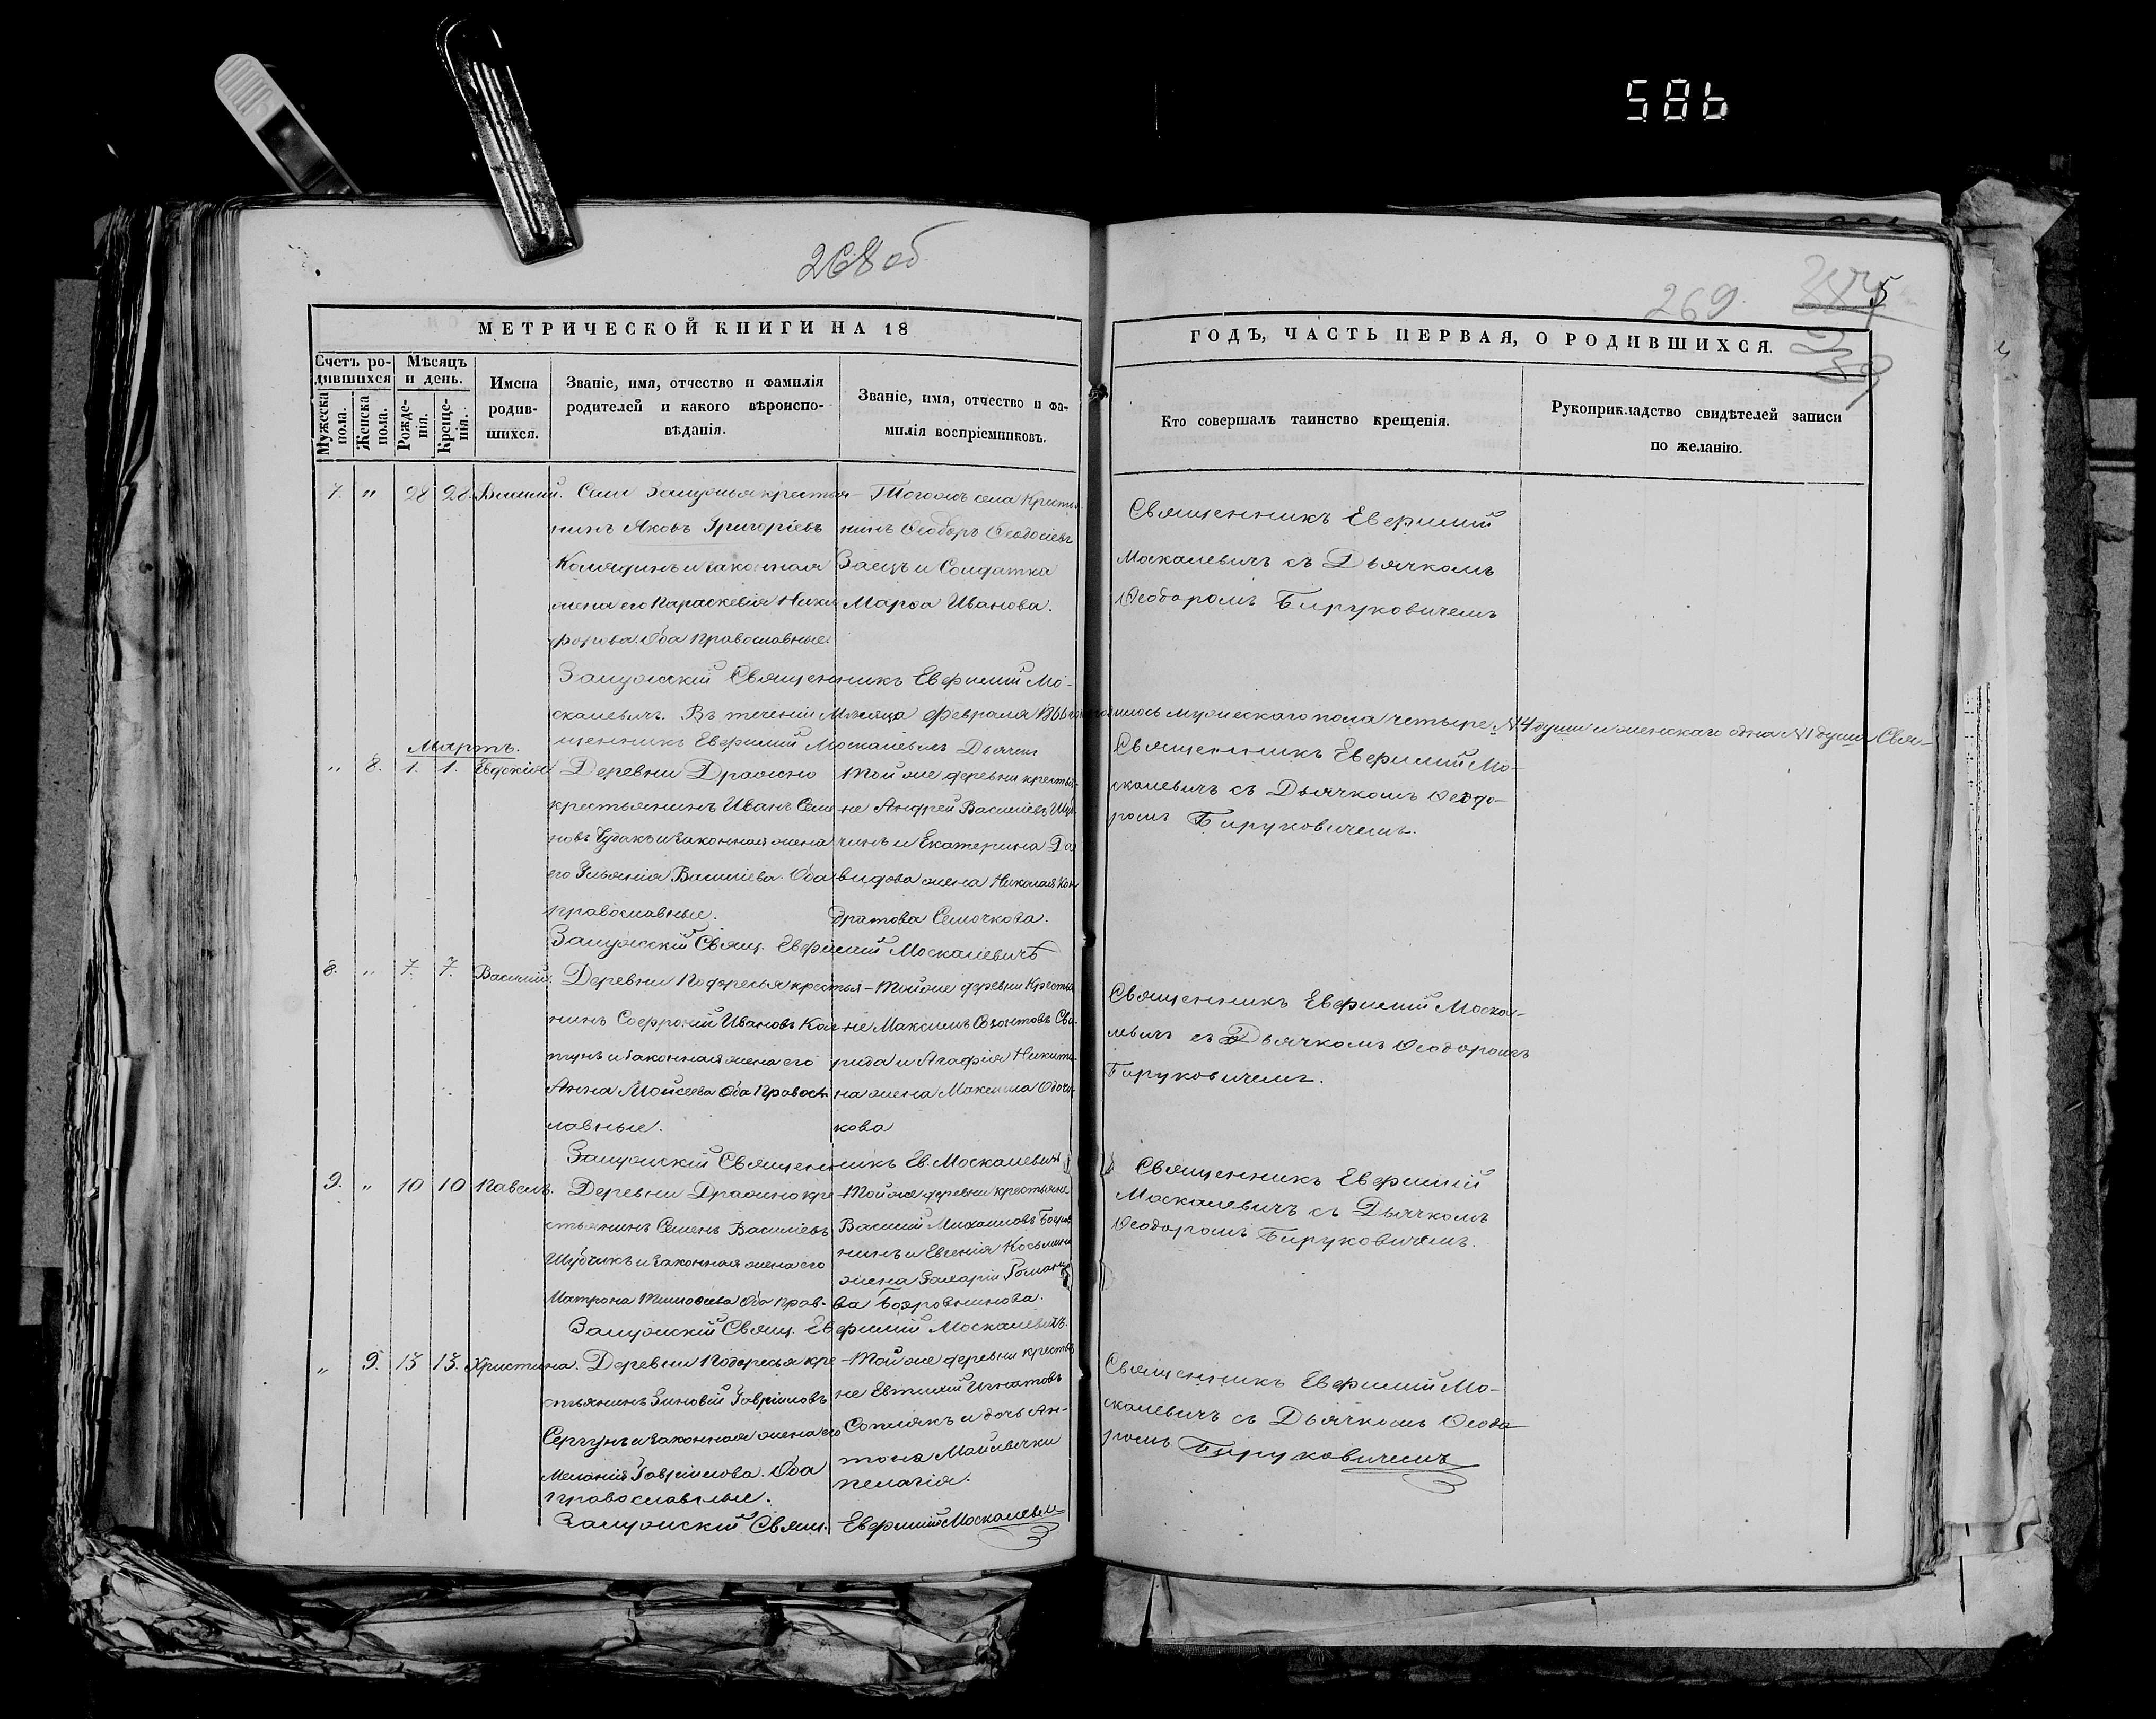 586
268 об
269
МЕТРИЧЕСКОЙ КНИГИ НА 18
Счетъ ро-
дившихся
Мужеска пола.
Женска пола.
Мѣсяцъ
и день.
Рожде-
нія.
Креще-
нія.
Имена
родив-
шихся.
Званіе, имя, отчество и фамилія
родителей и какого вѣроиспо-
вѣданія.
Званіе, имя, отчество и фа-
милія воспріемниковъ.
ГОДЪ, ЧАСТЬ ПЕРВАЯ, О РОДИВШИХСЯ.
Кто совершалъ таинство крещенія.
Рукоприкладство свидѣтелей записи
по желанію.
7. " 28 28. Василій.
Села Залужья крестья-
нинъ Яковъ Григоріевъ
Колядинъ и законная
жена его Параскевія Ники
форова. Оба православные.
Тогожъ села Крестья
нинъ Ѳеодоръ Ѳеодосіевъ
Заецъ и Солдатка
Марѳа Иванова.
Священникъ Евфимій
Москалевичъ съ Дьячкомъ
Ѳеодоромъ Бируковичемъ
Залужскій Священникъ Евфимій Мо-
скалевичъ. Въ теченіи Мѣсяца Февраля 1866 родилось мужескаго пола четыре №4 души и женскаго одна №1 душа Свя-
щенникъ Евфимій Москалевичъ Дьячекъ
Мартъ.
" 8. 1. 1. Евдокія
Деревни Дражно
крестьянинъ Иванъ Семе
новъ Чудакъ и законная жена
его Ульянія Василіева. Оба
православные.
Той же деревни крестья-
не Андрей Василіевъ
чикъ и Екатерина Да
видова жена Николая Кон
дратова Семочкова.
Священникъ Евфимій Мо-
скалевичъ съ Дьячкомъ Ѳеодо-
ромъ Бируковичемъ.
Залужскій Свящ. Евфимій Москалевичъ
8. " 7. 7. Василій.
Деревни Подресья крестья-
нинъ Софроній Ивановъ
и законная жена его
Анна Моисеева Оба Правос
лавные.
Той же деревни Крестья
не Максимъ Созонтовъ Сви-
рида и Агафія Никити-
на жена Максима
кова
Священникъ Евфимій Моска-
левичъ съ Дьячкомъ Ѳеодоромъ
Бируковичемъ.
Залужскій Священникъ Ев. Москалевичъ
9. " 10 10 Павелъ.
Деревни Дражно кре-
стьянинъ Семенъ Василіевъ
Шубчикъ и законная жена его
Матрона Тимоѳеева Оба прав.
Той же деревни крестьяне
Василій Михаиловъ
нинъ и Евгенія Косьмина
жена Захарія Романо
ва
Священникъ Евфимій
Москалевичъ съ Дьячкомъ
Ѳеодоромъ Бируковичемъ.
Залужскій Свящ. Евфимій Москалевичъ.
" 9. 13 13. Христина.
Деревни Подресья кре-
стьянинъ Зиновій Гавріиловъ
Сергунъ и законная жена его
Меланія Гавріилова. Оба
православные.
Той же деревни крестья
не Евтихій Игнатовъ
и дочь Ан-
тона
Пелагія.
Священникъ Евфимій Мо-
скалевичъ съ Дьячкомъ Ѳеодо-
ромъ Бируковичемъ
Залужскій Свящ. Евфимій Москалевичъ